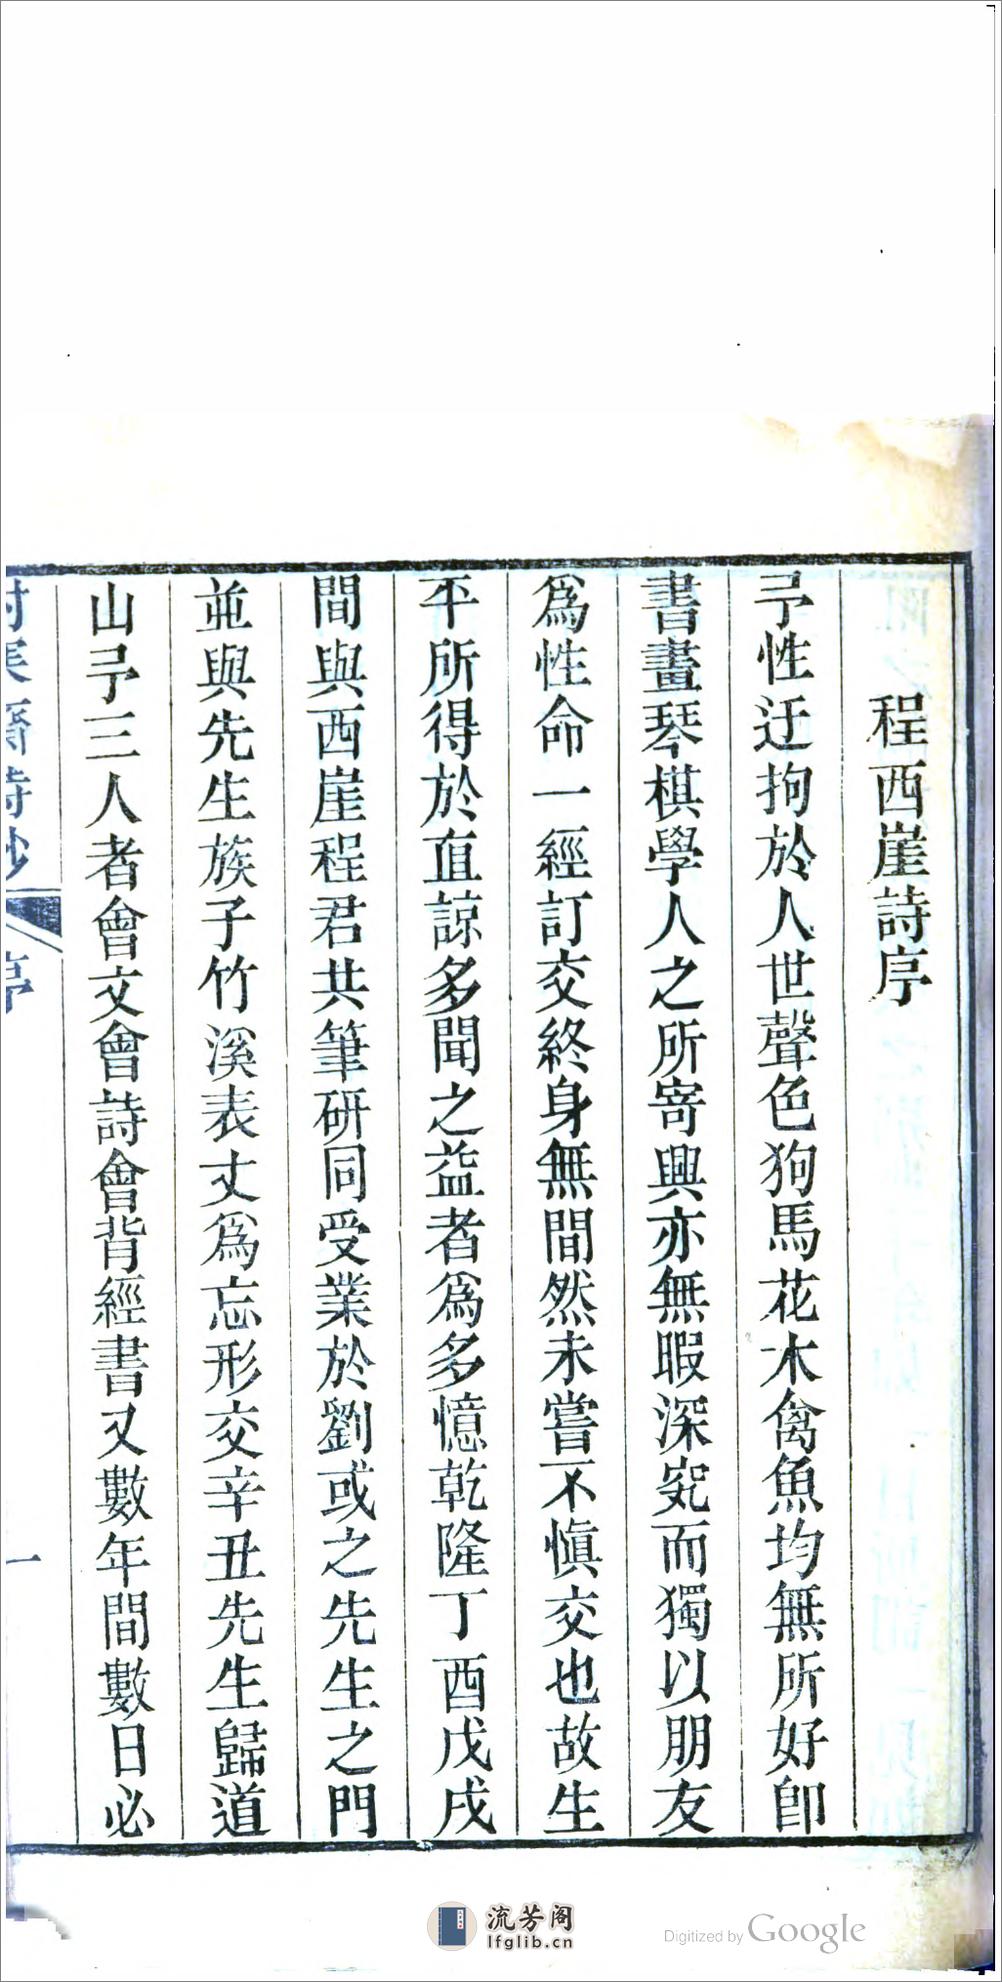 程西崖詩序
予性迂拘於人世聲色狗馬花木禽魚均無所好卽
書畫琴棋學人之所寄興亦無暇深究而獨以朋友
爲性命一經訂交終身無間然未嘗不慎交也故生
平所得於直諒多聞之益者爲多憶乾隆丁酉戊戌
間與西崖程君共筆研同受業於劉或之先生之門
並與先生族子竹溪表丈爲忘形交辛丑先生歸道
山予三人者會文會詩會背經書又數年間數日必
齋詩鈔 序 一
流芳阁
lfglib.cn
Digitized by Google